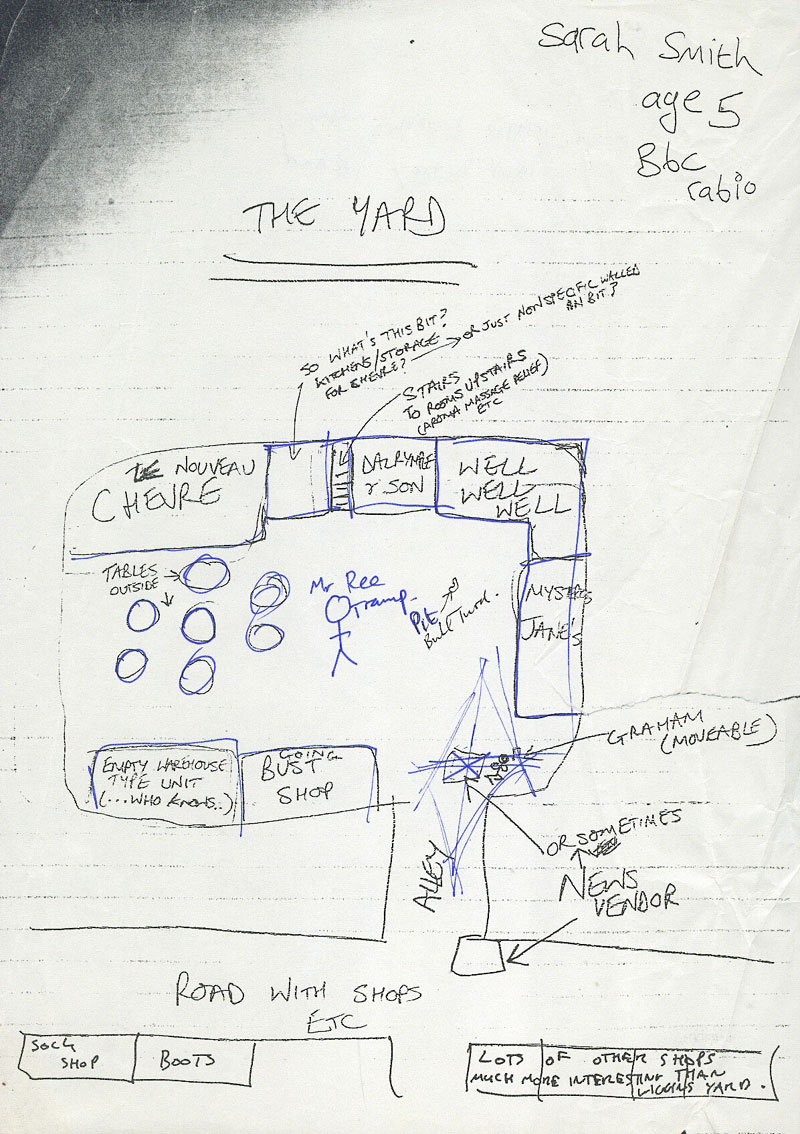 Sarah Smith
age 5
Bbc
rabio
THE YARD
SO WHAT'S THIS BIT?
KITCHENS/STORAGE
FOR CHEVRE?
OR JUST NONSPECIFIC WALLED
IN BIT?
STAIRS
TO ROOMS UPSTAIRS
(AROMA MASSAGE RELIEF)
ETC
LE NOUVEAU
CHEVRE
DALRYMPLE
& SON
WELL
WELL
WELL
TABLES
OUTSIDE
Mr Ree
Tramp.
Pit
Bull
MYSTERIES
JANE'S
GRAHAM
(MOVEABLE)
EMPTY WAREHOUSE
TYPE UNIT
(...WHO KNOWS..)
GOING
BUST
SHOP
OR SOMETIMES
ALLEY
NEWS
VENDOR
ROAD WITH SHOPS
ETC
SOCK
SHOP
BOOTS
LOTS OF OTHER SHOPS
MUCH MORE INTERESTING THAN
YARD.